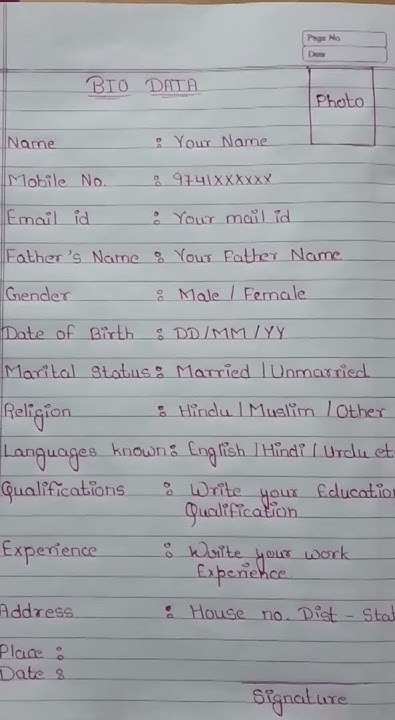 Page No
Date
BIO DATA
Photo
Name : Your Name
Mobile No. : 9741xxxxxx
Email id : Your mail id
Father's Name : Your Father Name
Gender : Male / Female
Date of Birth : DD/MM/YY
Marital Status : Married / Unmarried
Religion : Hindu / Muslim / Other
Languages known : English / Hindi / Urdu et
Qualifications : Write your Educatio
Qualification
Experience : Write your work
Experience
Address : House no. Dist - Sta
Place :
Date :
Signature